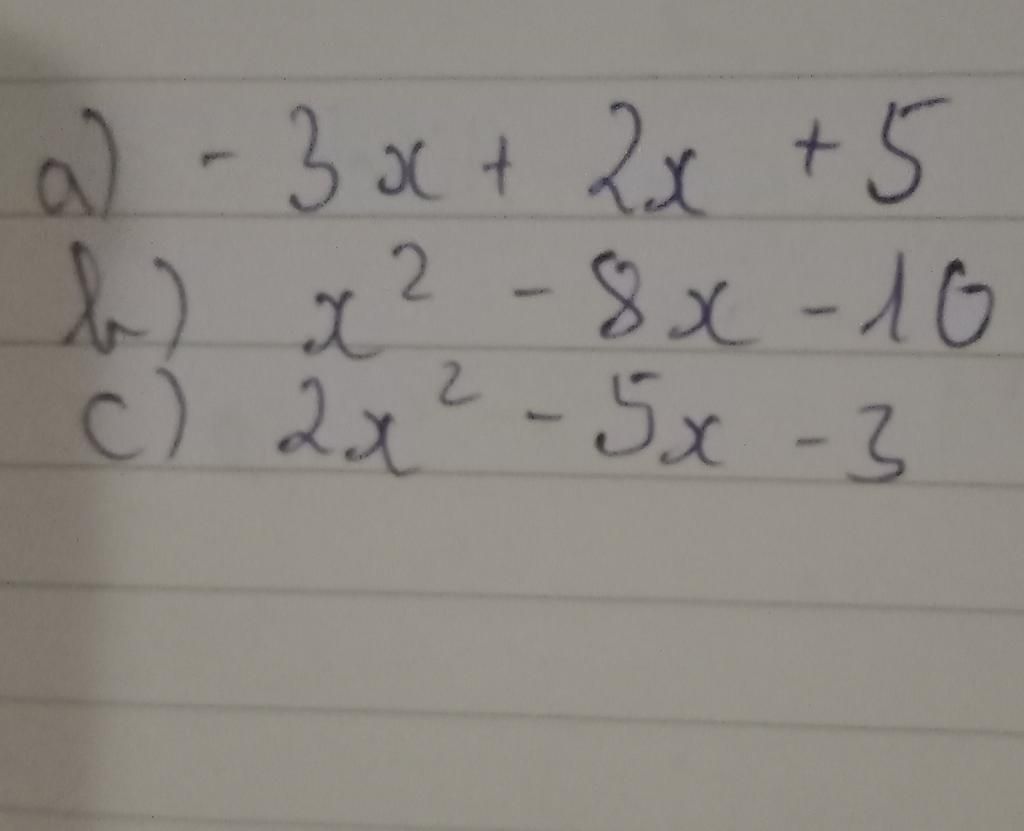 a) - 3x + 2x + 5
b) x² - 8x - 10
c) 2x² - 5x - 3